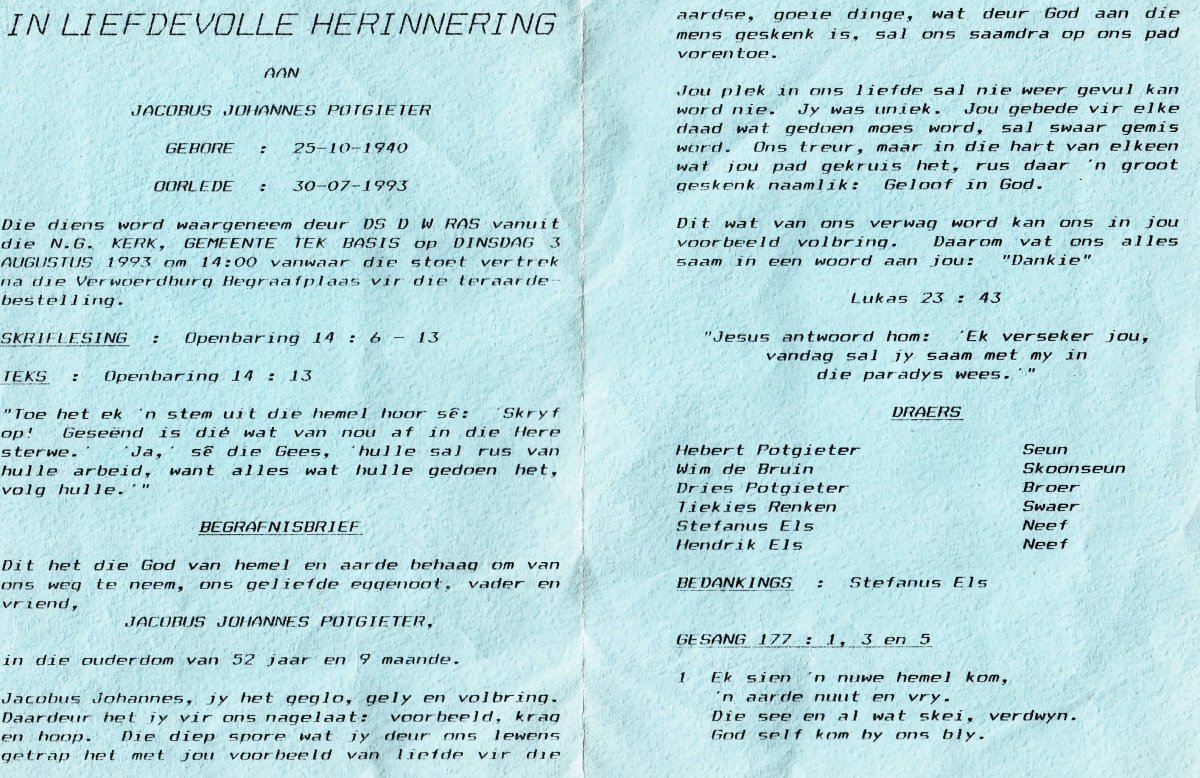 IN LIEFDEVOLLE HERINNERING
AAN
JACOBUS JOHANNES POTGIETER
GEBORE : 25-10-1940
OORLEDE : 30-07-1993
Die diens word waargeneem deur DS D W RAS vanuit
die N.G. KERK, GEMEENTE TEK BASIS op DINSDAG 3
AUGUSTUS 1993 om 14:00 vanwaar die stoet vertrek
na die Verwoerdburg Begraafplaas vir die teraarde-
bestelling.
SKRIFLESING : Openbaring 14 : 6 - 13
TEKS : Openbaring 14 : 13
"Toe het ek 'n stem uit die hemel hoor sê: 'Skryf
op! Geseënd is dié wat van nou af in die Here
sterwe. 'Ja,' sê die Gees, 'hulle sal rus van
hulle arbeid, want alles wat hulle gedoen het,
volg hulle.'"
BEGRAFNISBRIEF
Dit het die God van hemel en aarde behaag om van
ons weg te neem, ons geliefde eggenoot, vader en
vriend,
JACOBUS JOHANNES POTGIETER,
in die ouderdom van 52 jaar en 9 maande.
Jacobus Johannes, jy het geglo, gely en volbring.
Daardeur het jy vir ons nagelaat: voorbeeld, krag
en hoop. Die diep spore wat jy deur ons lewens
getrap het met jou voorbeeld van liefde vir die
aardse, goeie dinge, wat deur God aan die
mens geskenk is, sal ons saamdra op ons pad
vorentoe.
Jou plek in ons liefde sal nie weer gevul kan
word nie. Jy was uniek. Jou gebede vir elke
daad wat gedoen moes word, sal swaar gemis
word. Ons treur, maar in die hart van elkeen
wat jou pad gekruis het, rus daar 'n groot
geskenk naamlik: Geloof in God.
Dit wat van ons verwag word kan ons in jou
voorbeeld volbring. Daarom vat ons alles
saam in een woord aan jou: "Dankie"
Lukas 23 : 43
"Jesus antwoord hom: 'Ek verseker jou,
vandag sal jy saam met my in
die paradys wees.'"
DRAERS
Hebert Potgieter Seun
Wim de Bruin Skoonseun
Dries Potgieter Broer
Tiekies Renken Swaer
Stefanus Els Neef
Hendrik Els Neef
BEDANKINGS : Stefanus Els
GESANG 177 : 1, 3 en 5
1 Ek sien 'n nuwe hemel kom,
'n aarde nuut en vry.
Die see en al wat skei, verdwyn.
God self kom by ons bly.